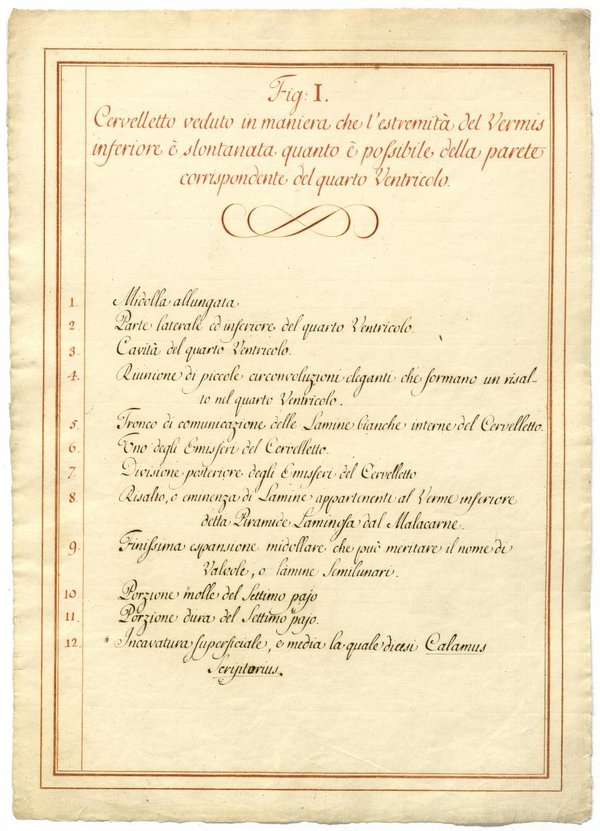 Fig: I.
Cervelletto veduto in maniera che l'estremità del Vermis
inferiore è slontanata quanto è possibile della parete
corrispondente del quarto Ventricolo.
1. Midolla allungata.
2. Parte laterale ed inferiore del quarto Ventricolo.
3. Cavità del quarto Ventricolo.
4. Riunione di piccole circonvoluzioni eleganti che formano un risal-
to nel quarto Ventricolo.
5. Tronco di comunicazione delle Lamine bianche interne del Cervelletto.
6. Uno degli Emisferi del Cervelletto.
7. Divisione posteriore degli Emisferi del Cervelletto
8. Risalto, o eminenza di Lamine appartenenti al Verme inferiore
detta Piramide Laminosa dal Malacarne.
9. Finissima espansione midollare che può meritare il nome di
Valvole, o lamine Semilunari.
10. Porzione molle del Settimo pajo
11. Porzione dura del Settimo pajo.
12. Incavatura superficiale, e media la quale dicesi Calamus
Scriptorius.